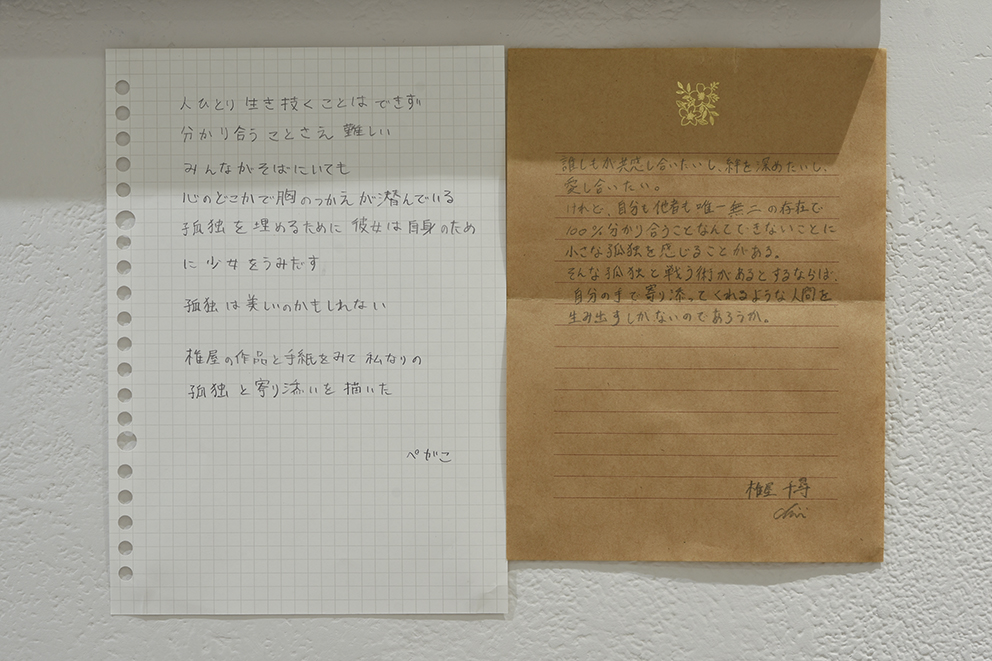 人ひとり生き技くことはできず
分かり合うことさえ難しい
みんながそばにいても
心のどこかで胸のつかえが潜んでいる
孤独を埋めるために彼女は自身のため
に少女をうみだす
孤独は美しいのかもしれない
椎屋の作品と手紙をみて私なりの
孤独と寄り添いを描いた
ぺがこ
誰しもが共感し合いたいし、絆を深めたいし、
愛し合いたい。
けれど、自分も他者も唯一無二の存在で
100%分かり合うことなんてできないことに
小さな孤独を感じることがある。
そんな孤独と戦う術があるとするならば、
自分の手で寄り添ってくれるような人間を
生み出すしかないのであろうか。
椎屋 千尋